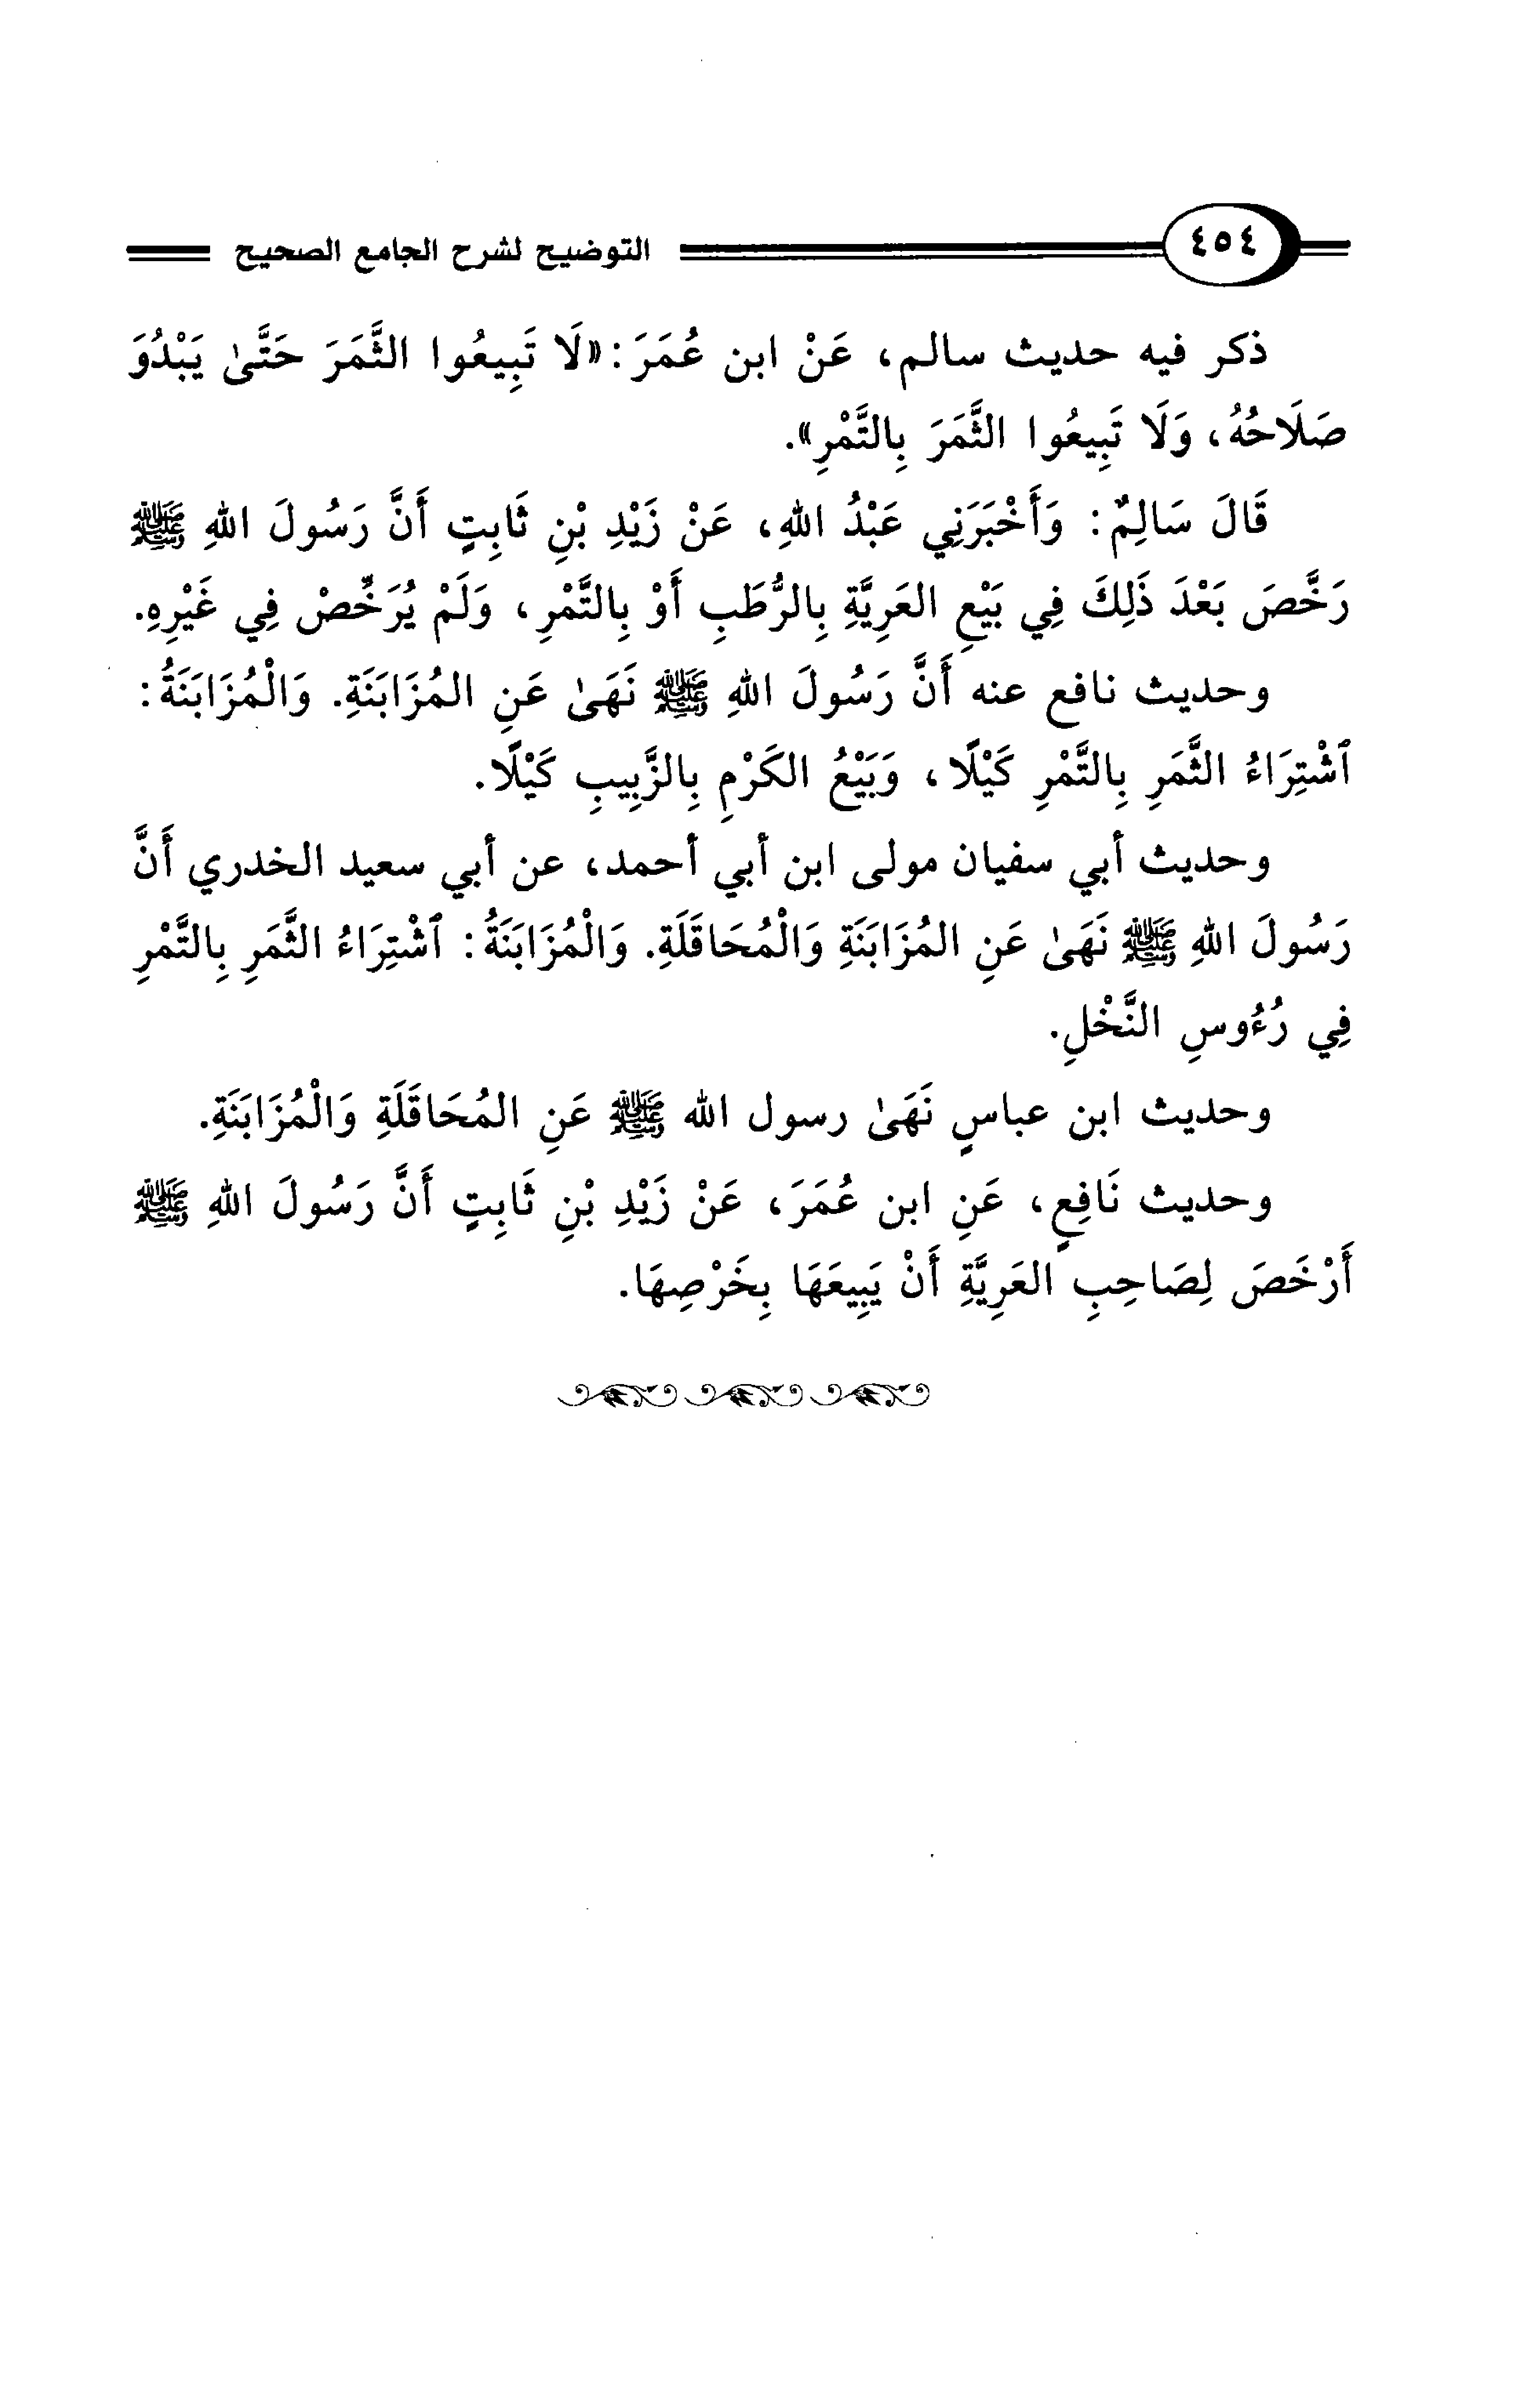 ٤٥٤ التوضيح لشرح الجامع الصحيح
ذكر فيه حديث سالم، عَنْ ابن عُمَرَ: «لَا تَبِيعُوا الثَّمَرَ حَتَّىٰ يَبْدُوَ
صَلَاحُهُ، وَلَا تَبِيعُوا الثَّمَرَ بِالتَّمْرِ».
قَالَ سَالِمٌ: وَأَخْبَرَنِي عَبْدُ اللهِ، عَنْ زَيْدِ بْنِ ثَابِتٍ أَنَّ رَسُولَ اللهِ ﷺ
رَخَّصَ بَعْدَ ذَلِكَ فِي بَيْعِ العَرِيَّةِ بِالرُّطَبِ أَوْ بِالتَّمْرِ، وَلَمْ يُرَخِّصْ فِي غَيْرِهِ.
وحديث نافع عنه أَنَّ رَسُولَ اللهِ ﷺ نَهَىٰ عَنِ المُزَابَنَةِ. وَالْمُزَابَنَةُ:
ٱشْتِرَاءُ الثَّمَرِ بِالتَّمْرِ كَيْلًا، وَبَيْعُ الكَرْمِ بِالزَّبِيبِ كَيْلًا.
وحديث أبي سفيان مولى ابن أبي أحمد، عن أبي سعيد الخدري أَنَّ
رَسُولَ اللهِ ﷺ نَهَىٰ عَنِ المُزَابَنَةِ وَالْمُحَاقَلَةِ. وَالْمُزَابَنَةُ: ٱشْتِرَاءُ الثَّمَرِ بِالتَّمْرِ
فِي رُءُوسِ النَّخْلِ.
وحديث ابن عباسٍ نَهَىٰ رسول الله ﷺ عَنِ المُحَاقَلَةِ وَالْمُزَابَنَةِ.
وحديث نَافِعٍ، عَنِ ابن عُمَرَ، عَنْ زَيْدِ بْنِ ثَابِتٍ أَنَّ رَسُولَ اللهِ ﷺ
أَرْخَصَ لِصَاحِبِ العَرِيَّةِ أَنْ يَبِيعَهَا بِخَرْصِهَا.